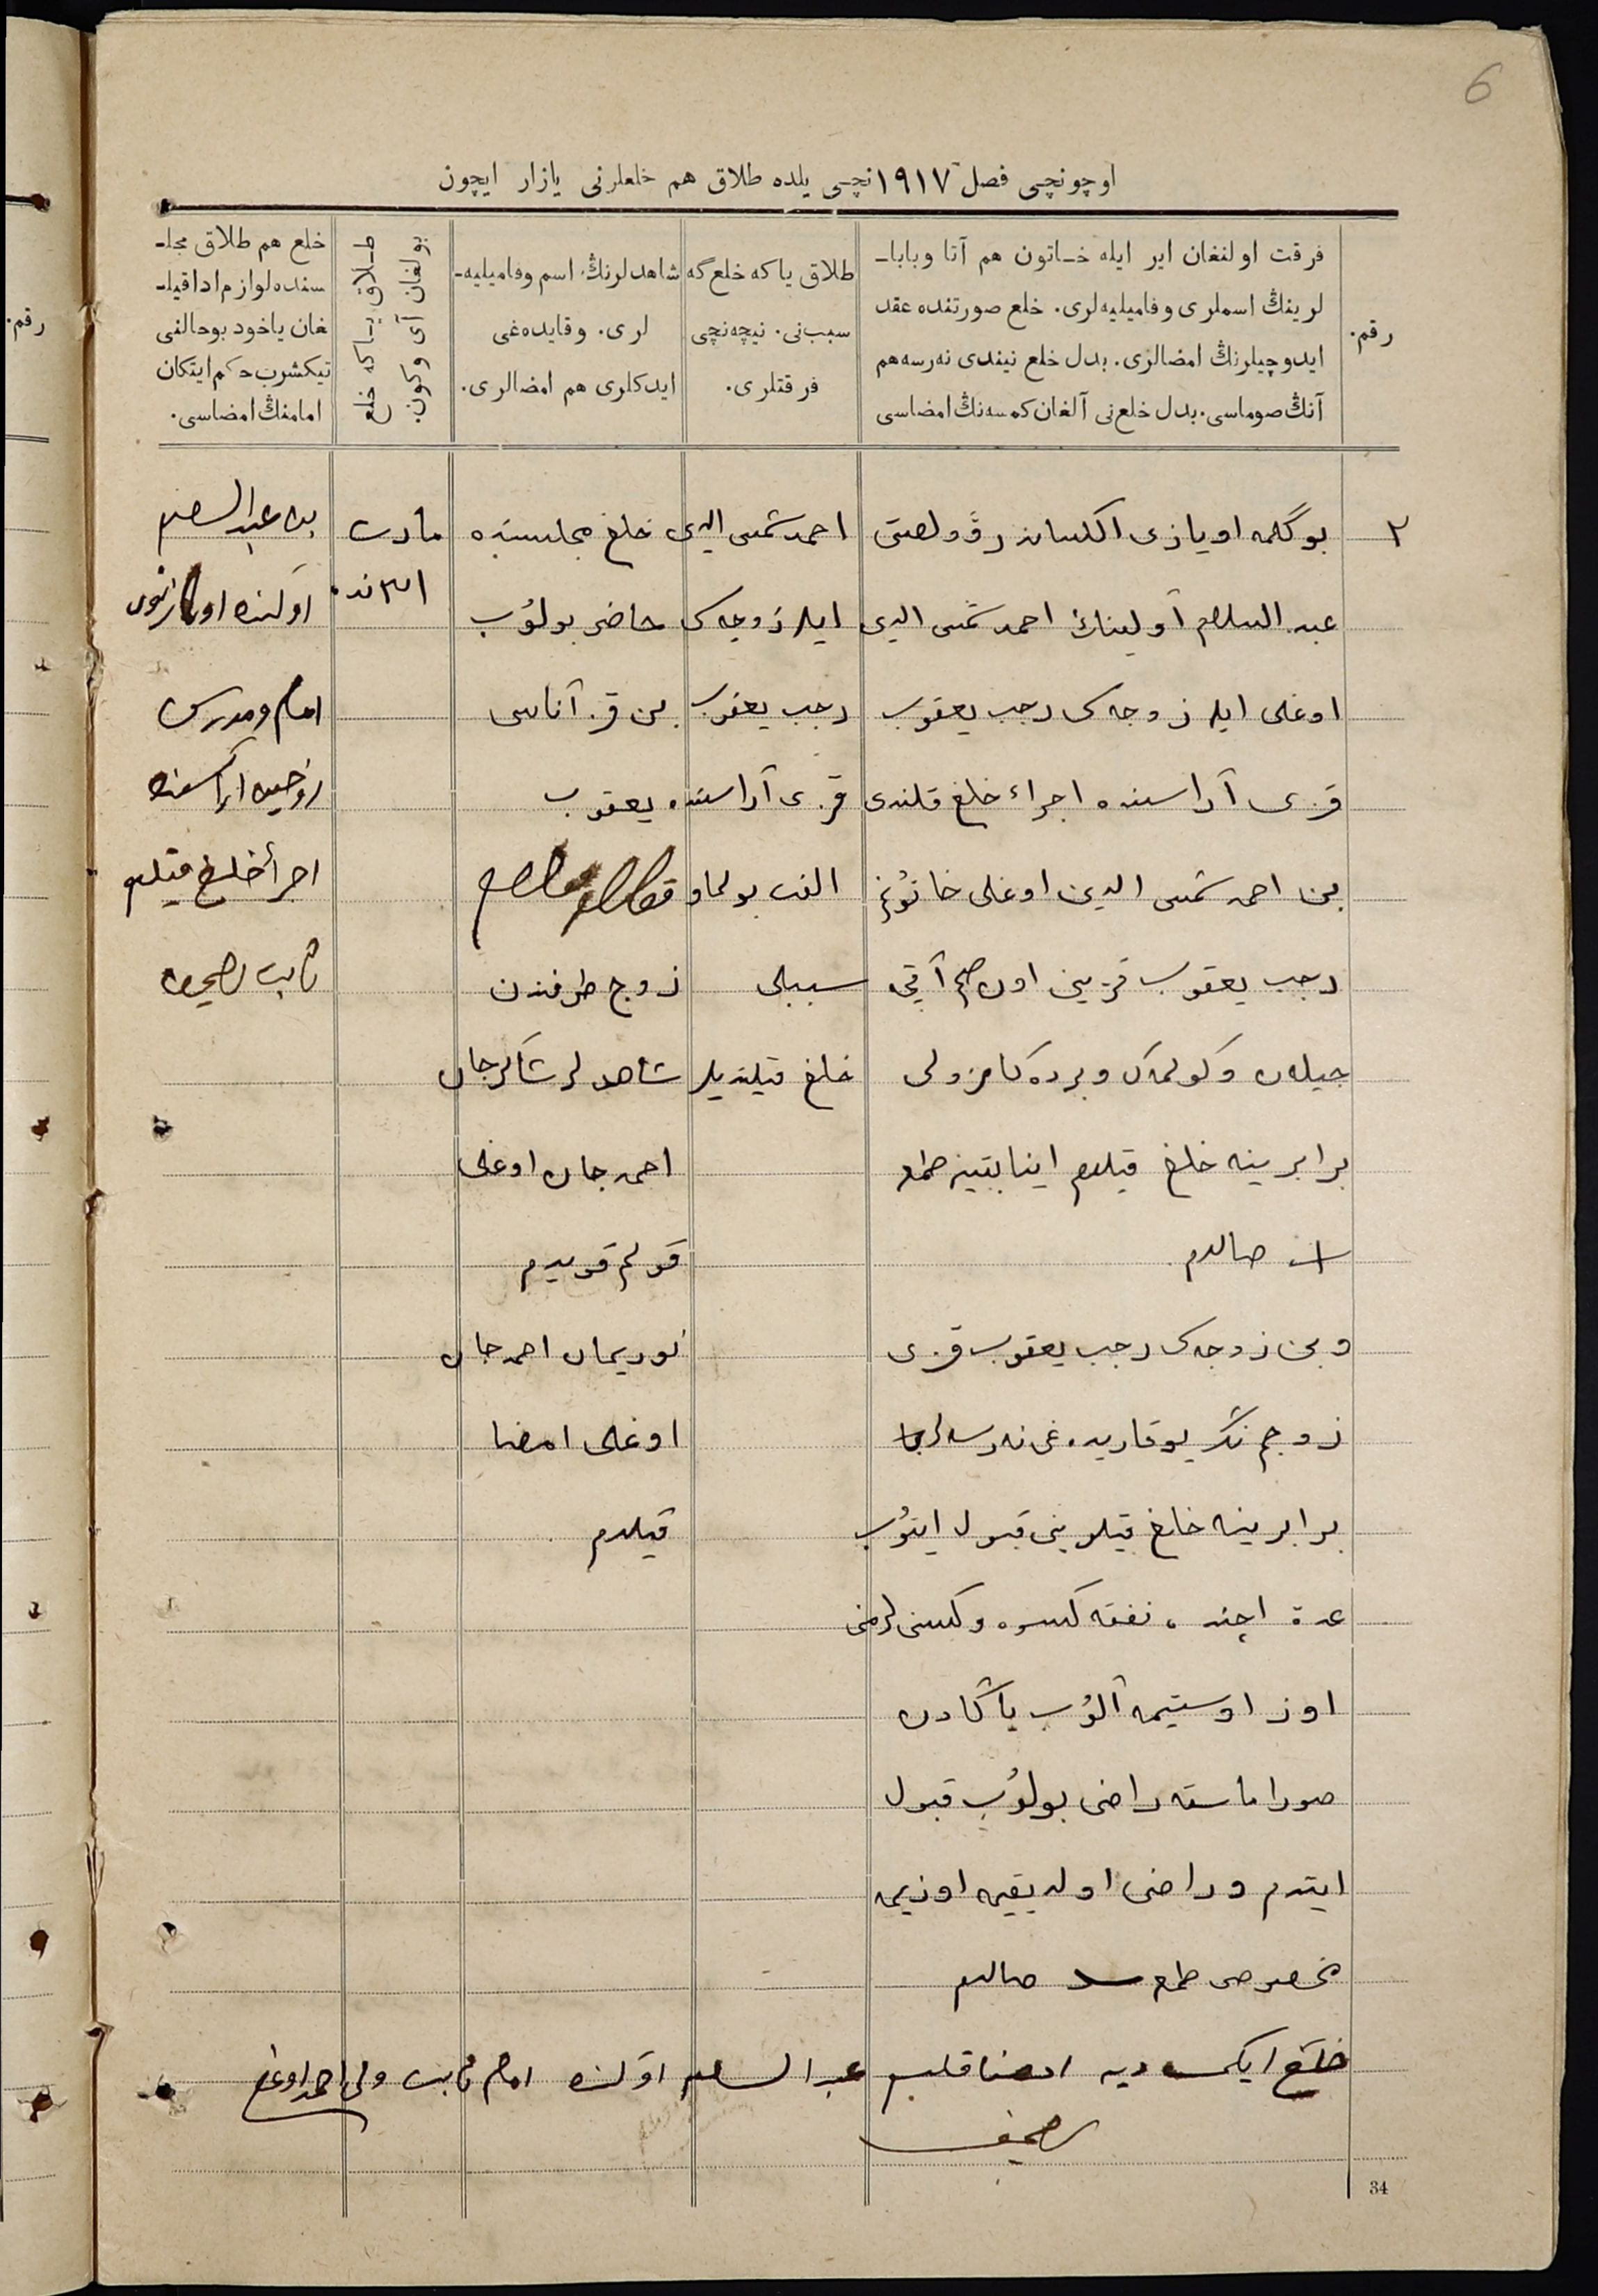 6
اوچونچی فصل ۱۹۱۷نچی یلده طلاق هم خلعلرنی یازار ایچون
رقم.
فرقت اولنغان ایر ایله خاتون هم آتا وبابا-
لرینڭ اسملری وفامیلیه‌لری. خلع صورتنده عقد
ایدوچیلرنڭ امضالری. بدل خلع نیندی نه‌رسه هم
آنڭ صوماسی. بدل خلع‌نی آلغان کمسه‌نڭ امضاسی
طلاق یاکه خلع‌گه
سبب‌نی. نیچه‌نچی
فرقتلری.
شاهدلرنڭ اسم وفامیلیه-
لری. وقایده‌غی
ایدکلری هم امضالری.
طلاق یاکه خلع
بولغان آی وکون.
خلع هم طلاق مجلـ
سنده لوازم ادا قیلـ
غان یاخود بوحالنی
تیکشرب حکم ایتکان
امامنڭ امضاسی.
رقم.
۲
بوگلمه اویازی الکساندروولصتی
عبدالسلام آولینڭ احمد شمس الدین
اوغلی ایله زوجه‌سی رجب یعقوب
قزی آراسنده اجراء خلع قلندی
بن احمد شمس الدین اوغلی خاتونم
رجب یعقوب قزینی اون صم آقچه
جیلان وکولمک وبرده کامزولی
برابرینه خلع قیلدم اینانتیز طمغه
صالدم
وبن زوجه‌سی رجب یعقوب قزی
زوجم نڭ یوقاریده‌غی نه‌رسه‌لر
برابرینه خلع قیلوینی قبول ایتوب
عدة اچنده نفقه کسوه وکسنی لرمنی
اوز اوستیمه آلوب یاڭادن
صوراماسقه راضی بولوب قبول
ایتدم وراضی اولدیقیمه اوزیمه
مخصوص طمغه صالدم
احمد شمس الدین
ایله زوجه‌سی
رجب یعقوب
قزی آراسنده
الفت بولماو
سببلی
خلع قیلندیلر
خلع مجلسینده
حاضر بولوب
بن قز آتاسی
یعقوب
زوج طرفندن
شاهدلر شاکرجان
احمدجان اوغلی
قولم قویدم
نوریمان احمدجان
اوغلی امضا
قیلدم
مارت
۱۳نده
بن عبدالسلام
اولنده
امام ومدرس
زوجین آراسنده
اجرأ خلع قیلدم
خلع ایکسه دیه امضا قلدم عبدالسلام اولنده امام ولی احمد اوغلی
34